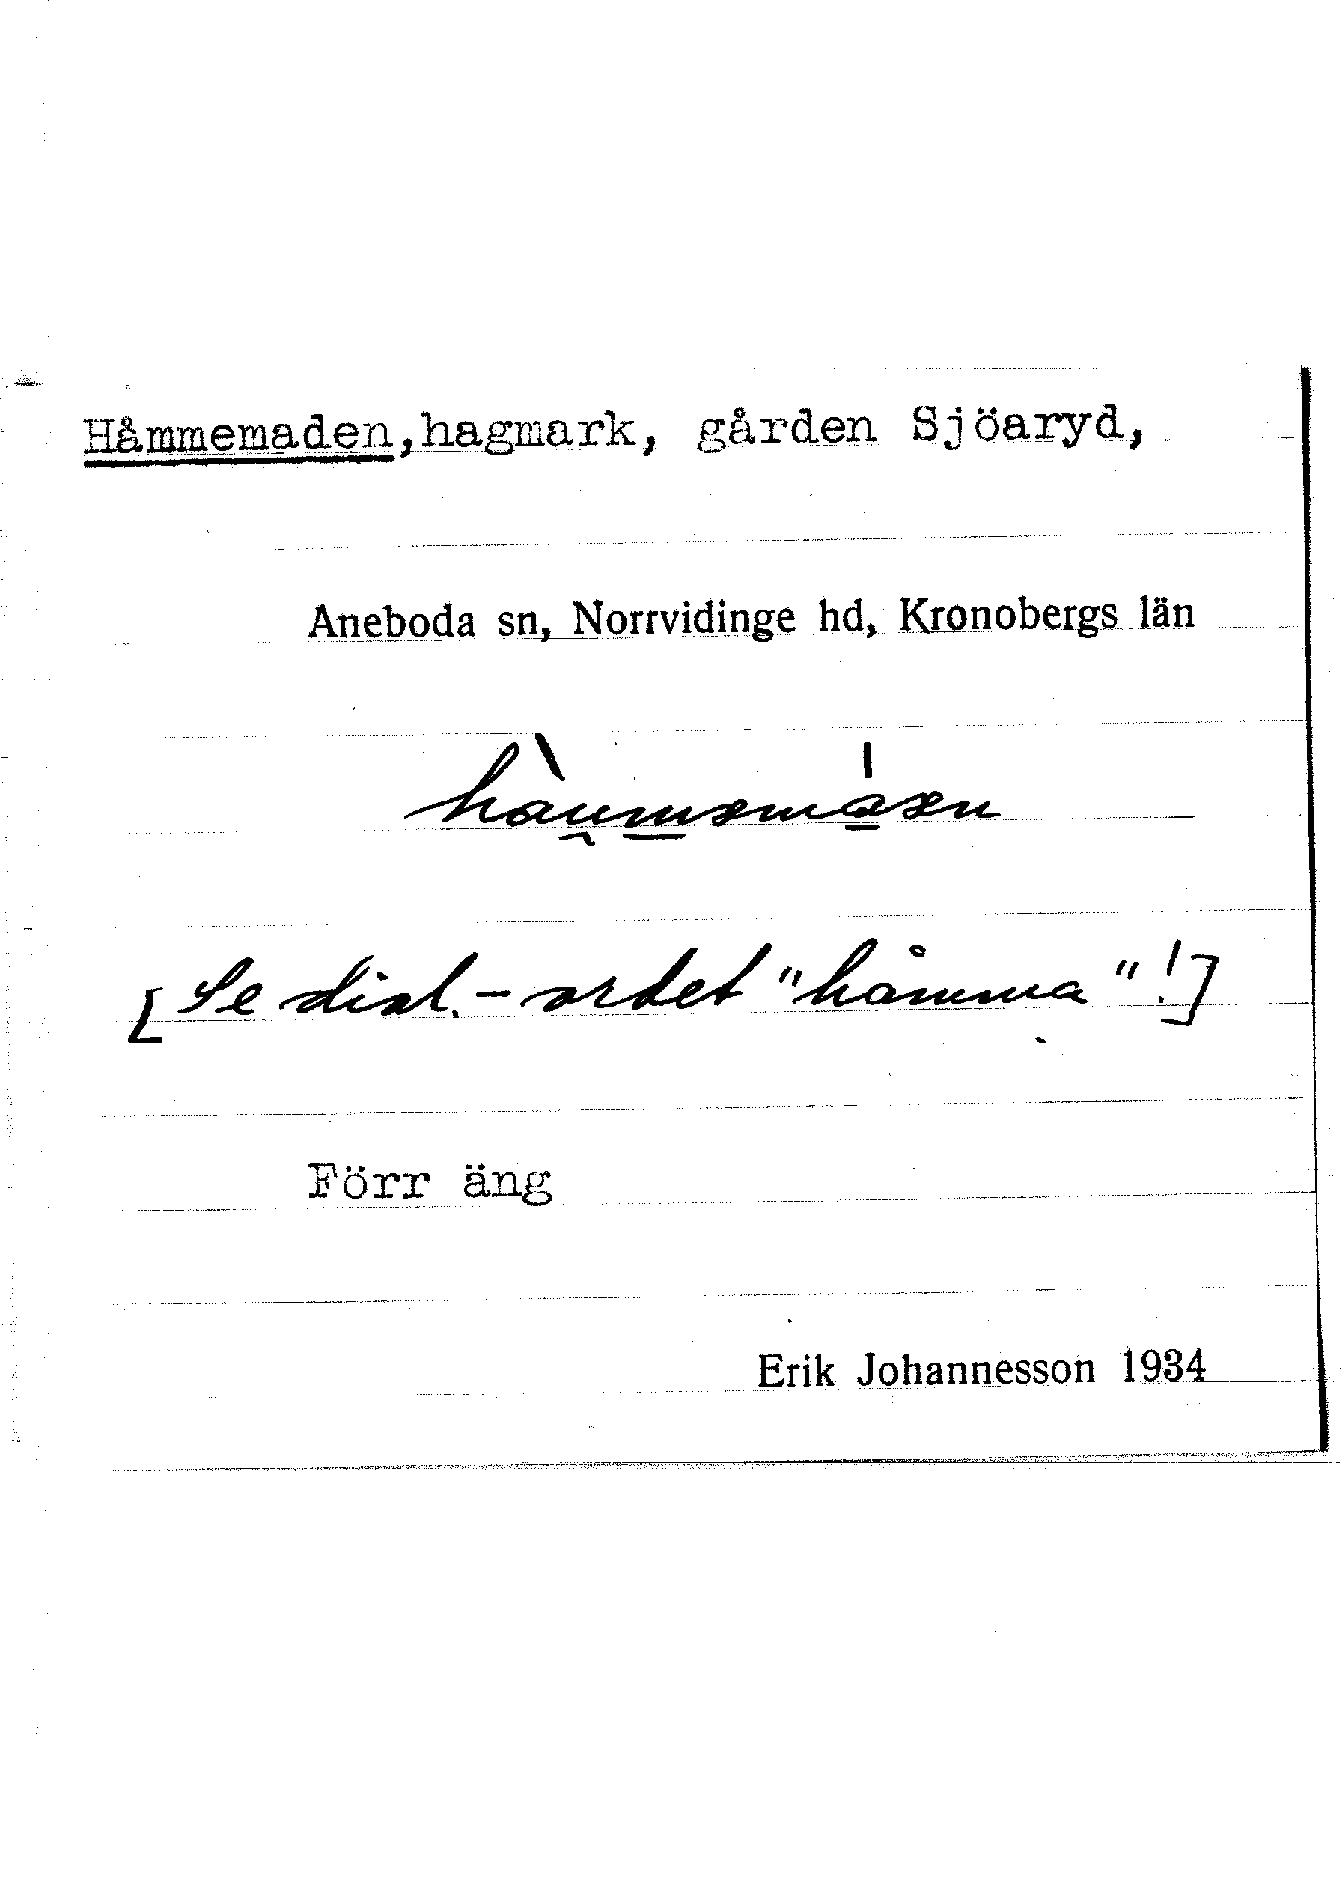 Håmmemaden,hagmark, gården Sjöaryd,
Aneboda sn, Norrvidinge hd, Kronobergs län
[Se dial.-ordet "håmma"!]
Förr äng
Erik Johannesson 1934